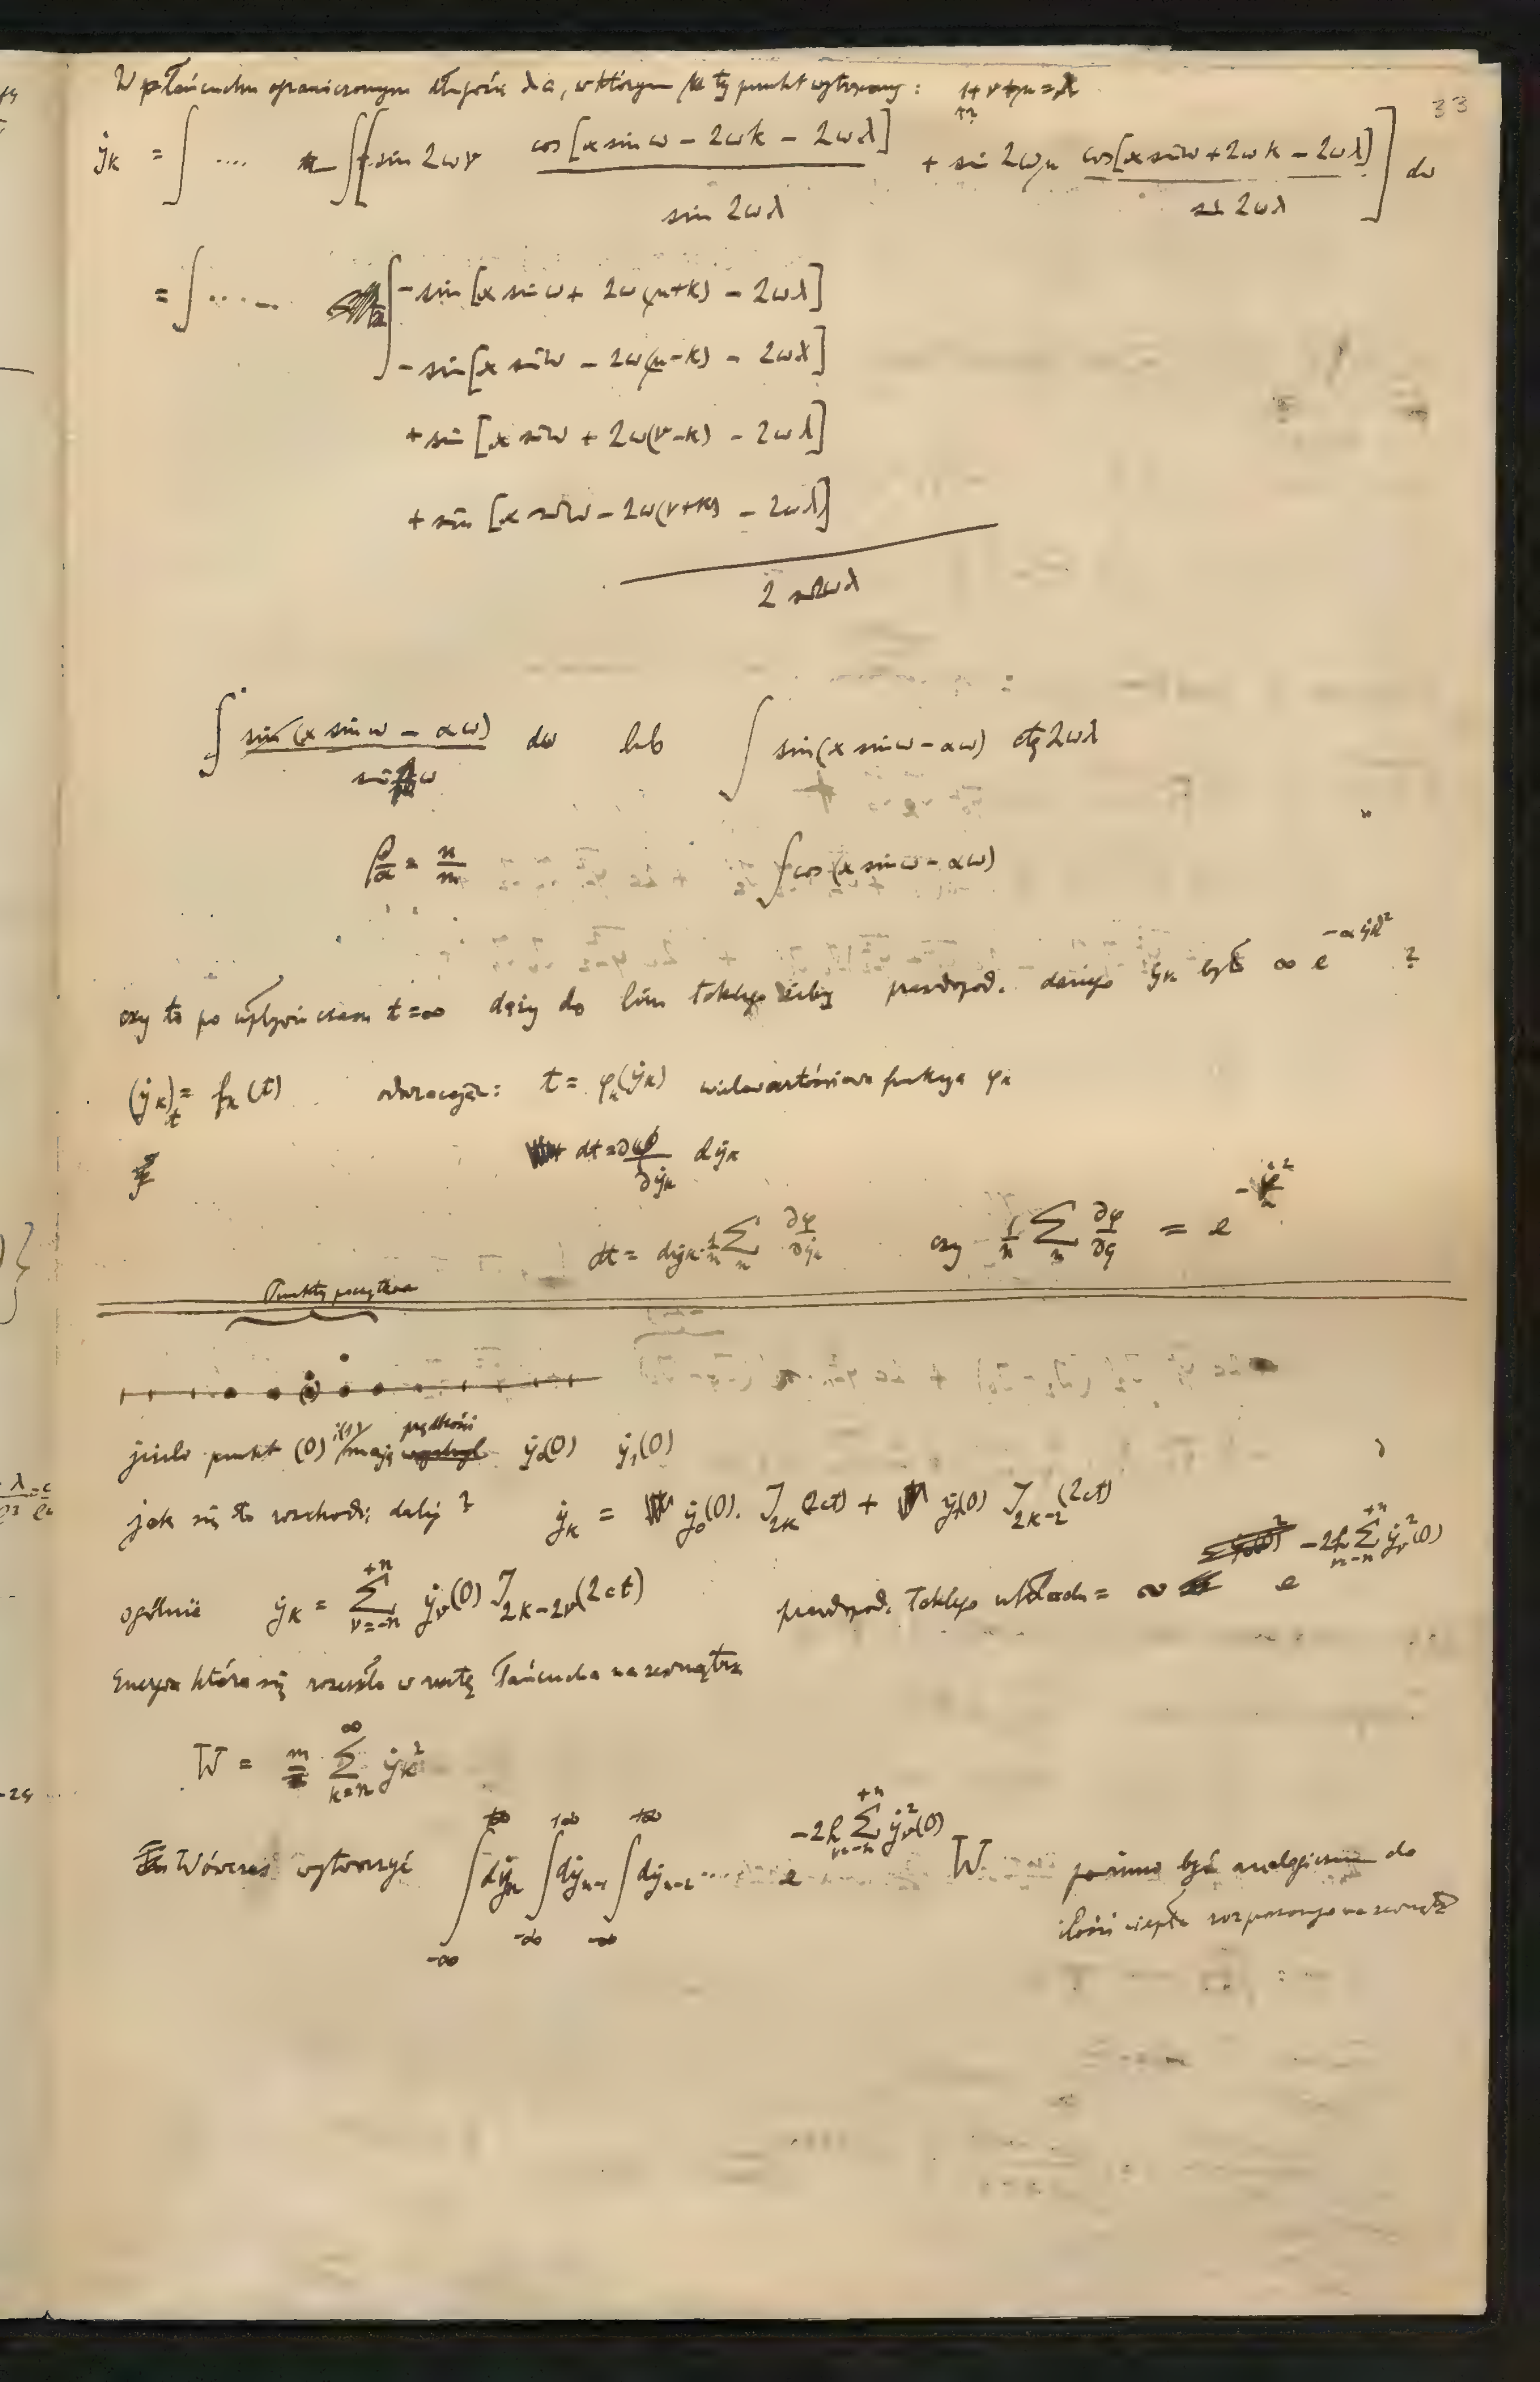 33
W łańcuchu ograniczonym długości λa, w którym k ty punkt wytrącony: 1+ν+μ=λ
ẏ_k = ∫ .... ∫[ sin 2ων cos[x sin ω − 2ωk − 2ωλ] / sin 2ωλ + sin 2ωμ cos[x sin ω + 2ωk − 2ωλ] / sin 2ωλ ] dω
= ∫ ...... [ − sin [x sin ω + 2ω(μ+k) − 2ωλ]
− sin [x sin ω − 2ω(μ−k) − 2ωλ]
+ sin [x sin ω + 2ω(ν−k) − 2ωλ]
+ sin [x sin ω − 2ω(ν+k) − 2ωλ]
2 sin 2ωλ
∫ sin (x sin ω − αω) / sin ω dω lub ∫ sin(x sin ω − αω) ctg 2ωλ
β/α = n/m ∫ cos (x sin ω − αω)
czy to po upływie czasu t=∞ dąży do lim takiego żeby prawdopod. danego ẏ_k był ∞ e^{−αẏ_k²} ?
(ẏ_k)_t = f_k (t) odwracając: t = φ_k(ẏ_k) wielowartościowa funkcja φ_k
dt = ∂φ/∂ẏ_k dẏ_k
dt = dẏ_k 1/n Σ_n ∂φ/∂ẏ_k czy 1/n Σ_n ∂φ/∂q = e
Punkty początkowe
jeżeli punkt (0) i (1) mają prędkości ẏ_0(0) ẏ_1(0)
jak się to rozchodzi dalej ? ẏ_k = ẏ_0(0). J_{2k}(2ct) + ẏ_1(0) J_{2k−2}(2ct)
ogólnie ẏ_k = Σ_{ν=−n}^{+n} ẏ_ν(0) J_{2k−2ν}(2ct) prawdopod. takiego układu = ∞ e^{−2h Σ_{n−n}^{+n} ẏ_ν²(0)}
Energia która się rozeszła w resztę łańcucha na zewnątrz
W = m/2 Σ_{k=n}^{∞} ẏ_k²
Wówczas wytworzyć ∫_{−∞}^{+∞} dẏ_n ∫_{−∞}^{+∞} dẏ_{n−1} ∫_{−∞}^{+∞} dẏ_{n−2} ..... e^{−2h Σ_{ν=−n}^{+n} ẏ_ν²(0)} W powinno być analogiczne do
ilości ciepła na zewnątrz